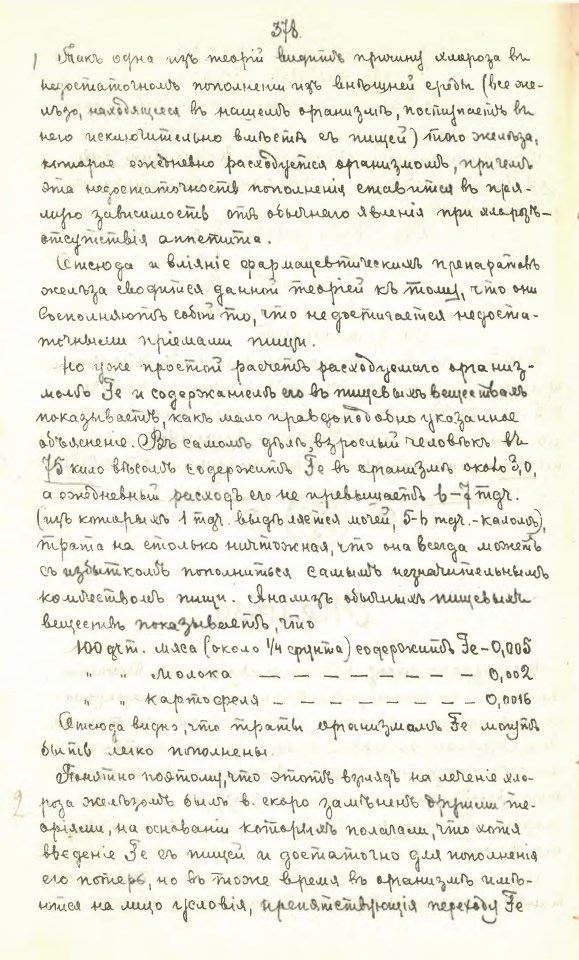 378.
1 Такъ одна изъ теорій видитъ причину хлороза въ
недостаточномъ пополненіи изъ внѣшней среды (все же-
лѣзо, находящееся въ нашемъ организмѣ, поступаетъ въ
него исключительно вмѣстѣ съ пищей) того желѣза,
которое ежедневно расходуется организмомъ, причемъ
эта недостаточность пополненія ставится въ пря-
мую зависимость отъ обычнаго явленія при хлорозѣ –
отсутствія аппетита.
Отсюда и вліяніе фармацевтическихъ препаратовъ
желѣза сводится данной теоріей къ тому, что они
восполняютъ собой то, что не достигается недоста-
точными пріемами пищи.
Но уже простой расчетъ расходуемаго организ-
момъ Fe и содержаніемъ его въ пищевыхъ веществахъ
показываетъ, какъ мало правдоподобно указанное
объясненіе. Въ самомъ дѣлѣ, взрослый человѣкъ въ
75 кило вѣсомъ содержитъ Fe въ организмѣ около 3,0,
а ежедневный расходъ его не превышаетъ 6–7 mgr.
(изъ которыхъ 1 mgr. выдѣляется мочей, 5-6 mgr. - каломъ),
трата на столько ничтожная, что она всегда можетъ
съ избыткомъ пополниться самымъ незначительнымъ
количествомъ пищи. Анализъ обычныхъ пищевыхъ
веществъ показываетъ, что
100 grm. мяса (около 1/4 фунта) содержитъ Fe – 0,005
" " молока – – – – – – – – 0,002
" " картофеля – – – – – – – 0,0016
Отсюда видно, что траты организмомъ Fe могутъ
быть легко пополнены.
2 Понятно поэтому, что этотъ взглядъ на леченіе хло-
роза желѣзомъ былъ в. скоро замѣненъ другими те-
оріями, на основаніи которыхъ полагали, что хотя
введеніе Fe съ пищей и достаточно для пополненія
его потерь, но въ тоже время въ организмѣ имѣ-
ются на лицо условія, препятствующія переходу Fe